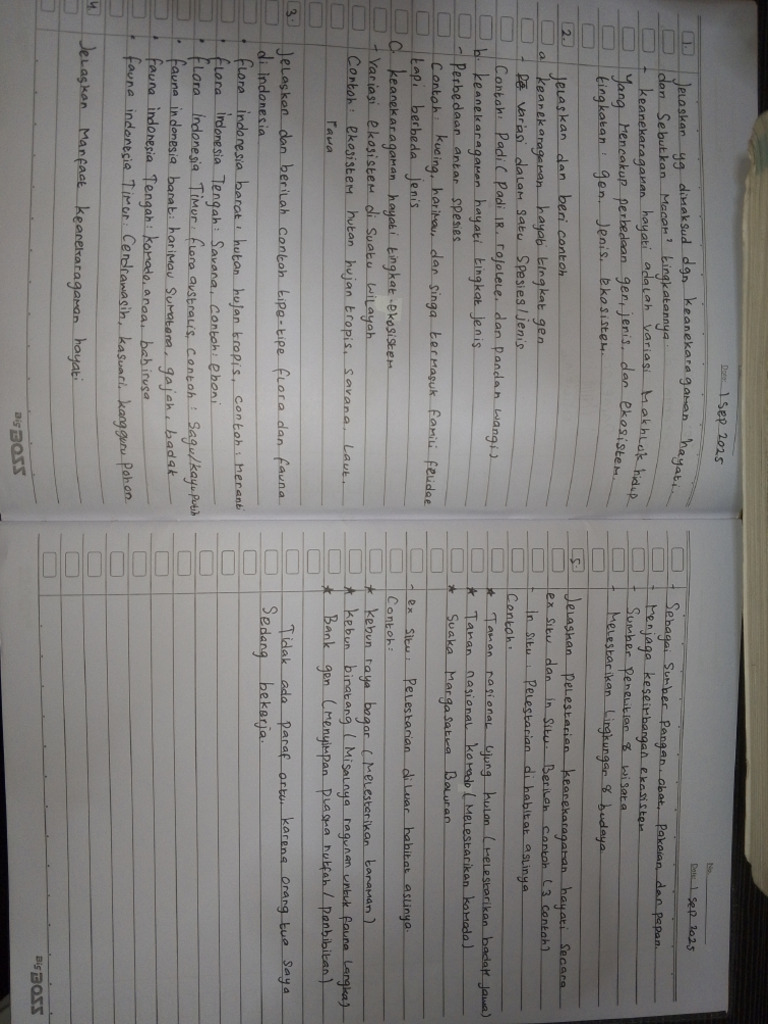 Date: 1 Sep 2025
1. Jelaskan yg dimaksud dgn keanekaragaman hayati.
dan Sebutkan Macam² tingkatannya
- keanekaragaman hayati adalah variasi Makhluk hidup
yang mencakup perbedaan gen, jenis, dan ekosistem.
tingkatan : gen, Jenis, ekosistem.
2. Jelaskan dan beri contoh
a keanekaragaman hayati tingkat gen
- variasi dalam satu Spesies/jenis
Contoh: Padi (Padi IR, rojolele, dan Pandan wangi)
b. keanekaragaman hayati tingkat jenis
- Perbedaan antar spesies
Contoh: kucing, harimau, dan singa termasuk famili felidae
tapi berbeda jenis
C. keanekaragaman hayati tingkat ekosistem
- Variasi ekosistem di suatu wilayah
Contoh: ekosistem hutan hujan tropis, savana, Laut,
rawa
3. Jelaskan dan berilah contoh tipe-tipe flora dan fauna
di Indonesia
• flora indonesia barat: hutan hujan tropis, contoh: meranti
• flora Indonesia Tengah: Savana, Contoh: eboni
• flora Indonesia Timur: flora australis, Contoh: Sagu/kayu putih
• fauna indonesia barat: harimau Sumatera, gajah, badak
• fauna indonesia Tengah: komodo, anoa, babirusa
• fauna indonesia Timur: Cendrawasih, kasuari, kangguru pohon
4. Jelaskan Manfaat keanekaragaman hayati
Big BOSS
No.
Date: 1 Sep 2025
- Sebagai Sumber pangan, obat, Pakaian dan papan
- Menjaga keseimbangan ekosistem
- Sumber Penelitian & wisata
- Melestarikan Lingkungan & budaya
5. Jelaskan Pelestarian keanekaragaman hayati secara
ex situ dan in situ. Berilah contoh (3 contoh)
- In situ : Pelestarian di habitat aslinya
Contoh:
* Taman nasional Ujung kulon (melestarikan badak jawa)
* Taman nasional komodo (Melestarikan komodo)
* Suaka Margasatwa Bawean
- ex situ : Pelestarian diluar habitat aslinya.
Contoh:
* kebun raya bogor (Melestarikan tanaman)
* kebun binatang (Misalnya ragunan untuk fauna langka)
* Bank gen (menyimpan Plasma nutfah/Pembibitan)
Tidak ada paraf ortu karena orang tua saya
Sedang bekerja.
Big BOSS